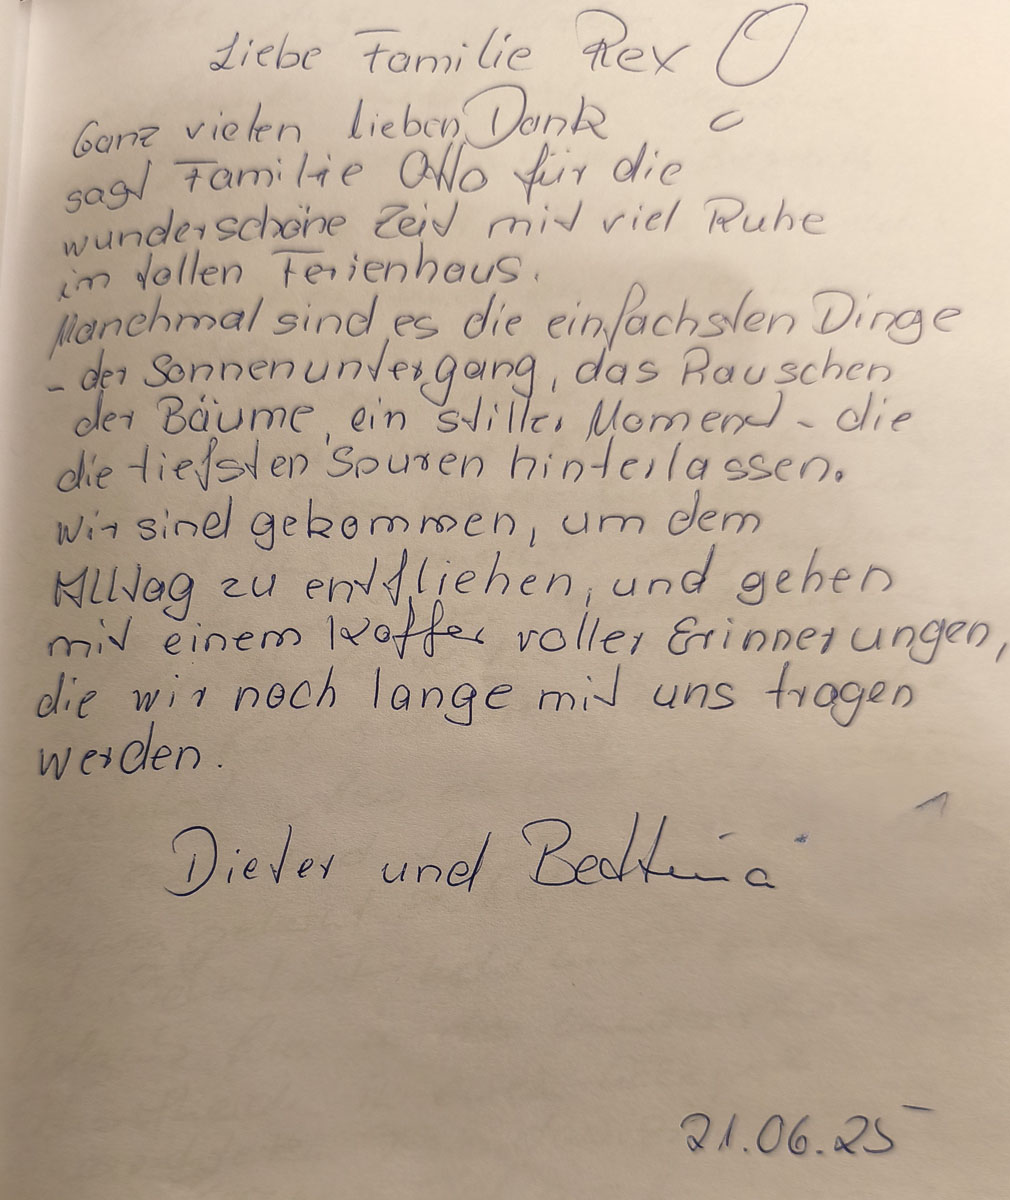 Liebe Familie Rex !
Ganz vielen lieben Dank
sagt Familie Otto für die
wunderschöne Zeit mit viel Ruhe
im tollen Ferienhaus.
Manchmal sind es die einfachsten Dinge
- der Sonnenuntergang, das Rauschen
der Bäume, ein stiller Moment - die
die tiefsten Spuren hinterlassen.
Wir sind gekommen, um dem
Alltag zu entfliehen, und gehen
mit einem Koffer voller Erinnerungen,
die wir noch lange mit uns tragen
werden.
Dieter und Bettina
21.06.25